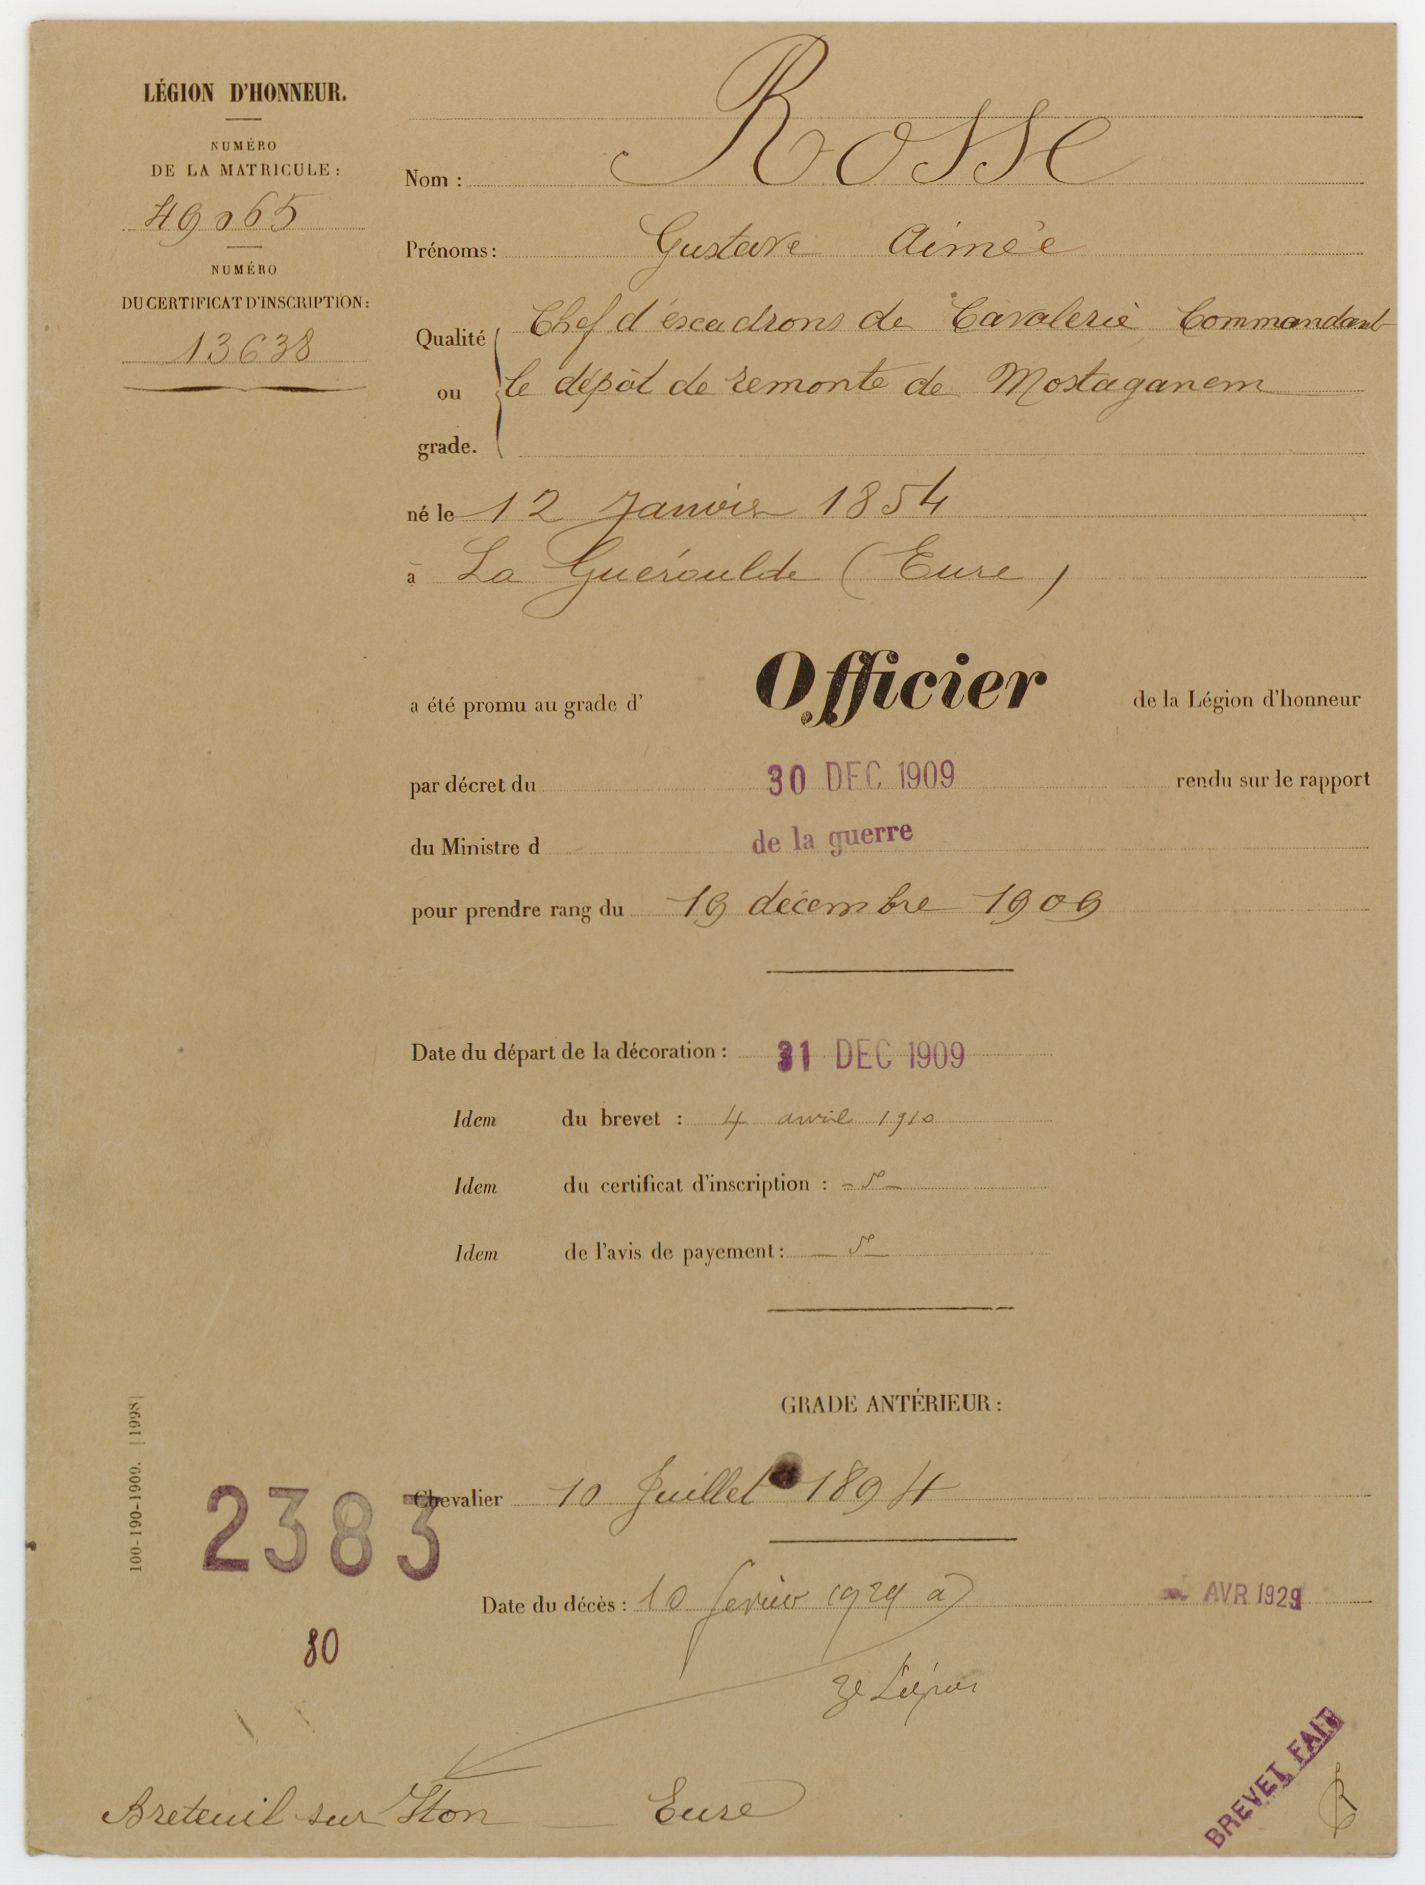 LÉGION D'HONNEUR.
NUMÉRO
DE LA MATRICULE :
49065
NUMÉRO
DU CERTIFICAT D'INSCRIPTION :
13638
Nom : Rosse
Prénoms : Gustave Aimée
Qualité ou grade. Chef d'éscadrons de Cavalerie Commandant
le dépôt de remonte de Mostaganem
né le 12 Janvier 1854
à La Guéroulde (Eure)
a été promu au grade d' Officier de la Légion d'honneur
par décret du 30 DEC 1909 rendu sur le rapport
du Ministre d de la guerre
pour prendre rang du 19 décembre 1909
Date du départ de la décoration : 31 DEC 1909
Idem du brevet : 4 avril 1910
Idem du certificat d'inscription :
Idem de l'avis de payement :
GRADE ANTÉRIEUR :
Chevalier 10 Juillet 1894
100-190-1909. [1998]
2383
Date du décès : 10 fevrier 1929 à
AVR 1929
80
Breteuil sur Iton Eure
BREVET FAIT